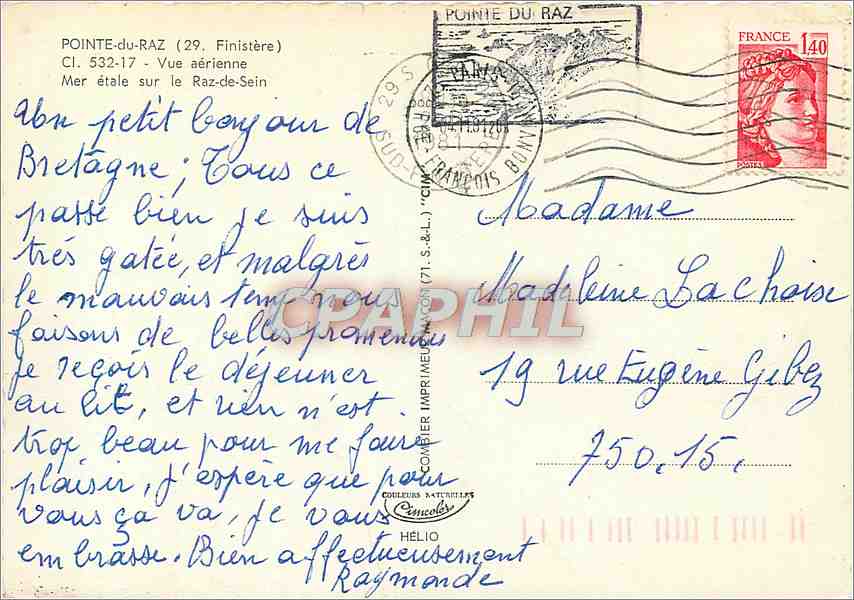 POINTE-du-RAZ (29. Finistère)
Cl. 532-17 - Vue aérienne
Mer étale sur le Raz-de-Sein
Un petit bonjour de
Bretagne; Tous ce
passe bien je suis
trés gatée, et malgrès
le mauvais temp nous
faisons de belles promenades
je reçois le déjeuner
au lit, et rien n'est
trop beau pour me faire
plaisir, j'espère que pour
vous ça va, je vous
embrasse. Bien affectueusement
Raymonde
POINTE DU RAZ
29 S
PARIS
FRANÇOIS BONV
FRANCE
1,40
POSTES
COMBIER IMPRIMEUR MACON (71. S.&L.) "CIM"
COULEURS NATURELLES
Cimcolor
HÉLIO
Madame
Madeleine Lachaise
19 rue Eugène Gibez
750.15.
CPAPHIL